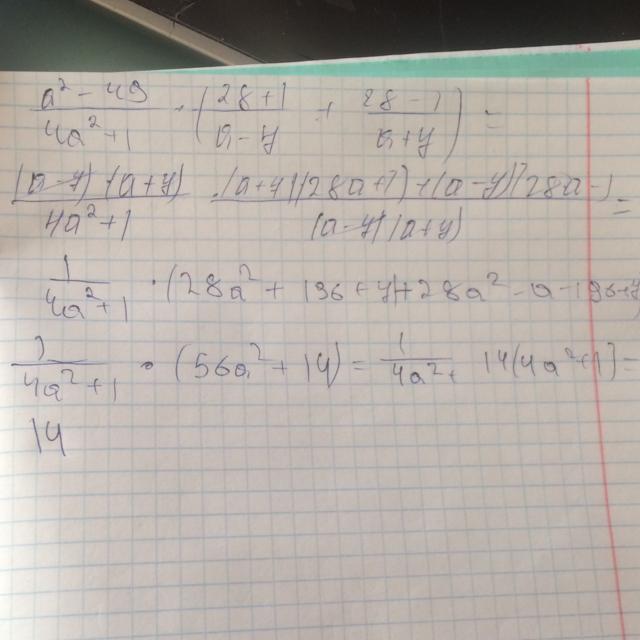 a² - 49 / 4a² + 1 · (28 + 1 / a - y + 28 - 1 / a + y) =
(a - y) · (a + y) / 4a² + 1 · (a + y)(28a + 1) + (a - y)(28a - 1 / (a - y)(a + y) =
1 / 4a² + 1 · (28a² + 196 + y) + 28a² - a - 196 + y
1 / 4a² + 1 · (56a² + 14) = 1 / 4a² + 14(4a² + 1) =
14